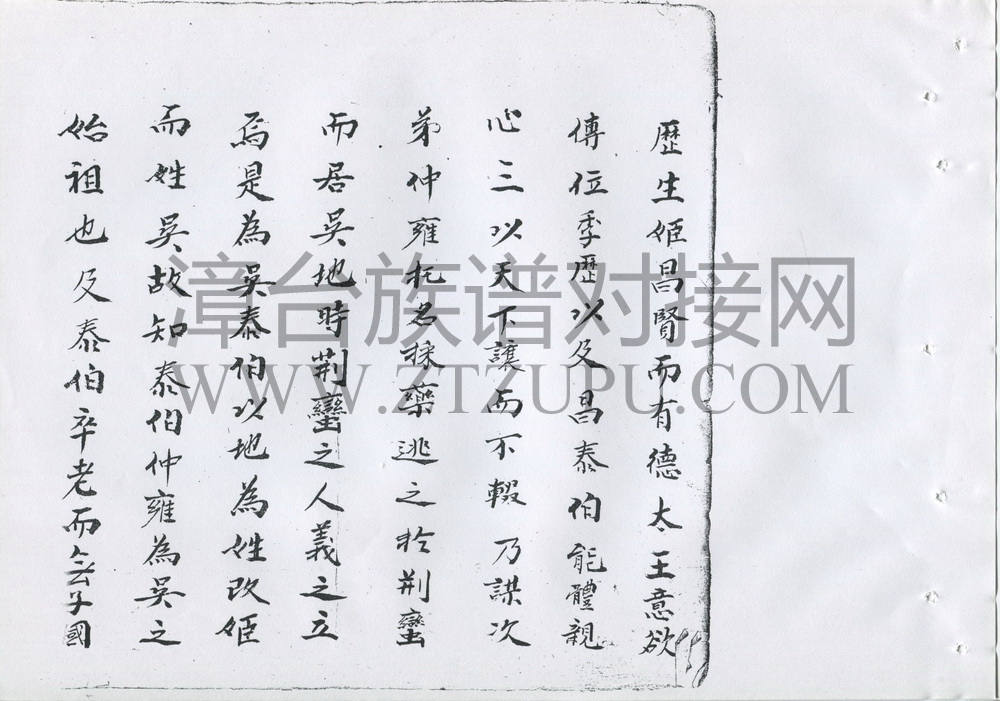 歷生姬昌賢而有德太王意欲
傳位季歷以及昌泰伯能體親
心三以天下讓而不輟乃謀次
弟仲雍托名採藥逃之於荆蠻
而居吳地時荆蠻之人義之立
焉是為吳泰伯以地為姓改姬
而姓吳故知泰伯仲雍為吳之
始祖也及泰伯卒老而無子國
漳台族谱对接网
WWW.ZTZUPU.COM